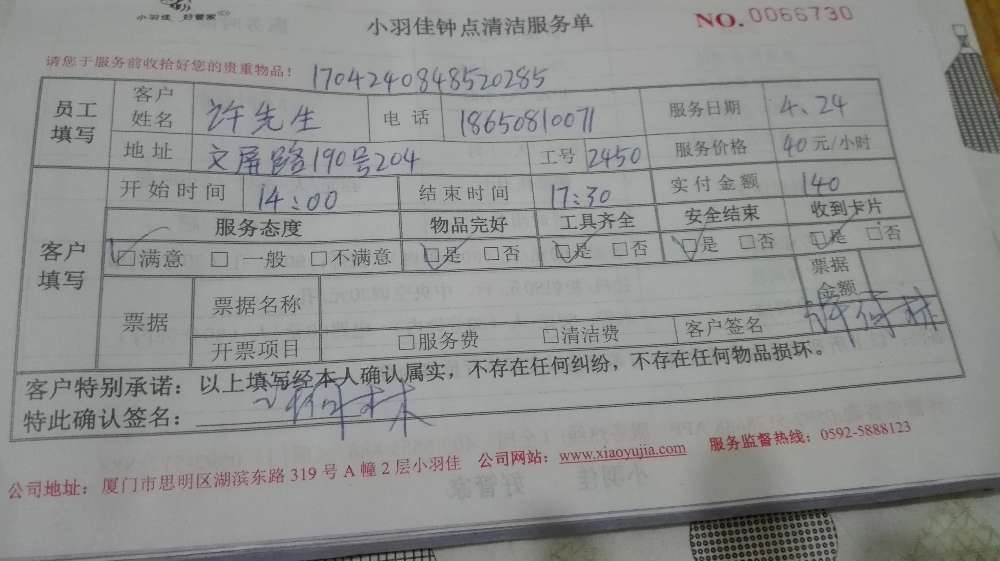 小羽佳 好管家
小羽佳钟点清洁服务单
NO.0066730
请您于服务前收拾好您的贵重物品！
1704240848520285
员工填写 客户姓名 许先生 电话 18650810071 服务日期 4、24
地址 文屏路190号204 工号 2450 服务价格 40元/小时
客户填写 开始时间 14:00 结束时间 17:30 实付金额 140
服务态度 物品完好 工具齐全 安全结束 收到卡片
□满意 □一般 □不满意 □是 □否 □是 □否 □是 □否 □是 □否
票据 票据名称 票据金额
开票项目 □服务费 □清洁费 客户签名
客户特别承诺：以上填写经本人确认属实，不存在任何纠纷，不存在任何物品损坏。
特此确认签名：
公司地址：厦门市思明区湖滨东路319号A幢2层小羽佳 公司网站：www.xiaoyujia.com 服务监督热线：0592-5888123